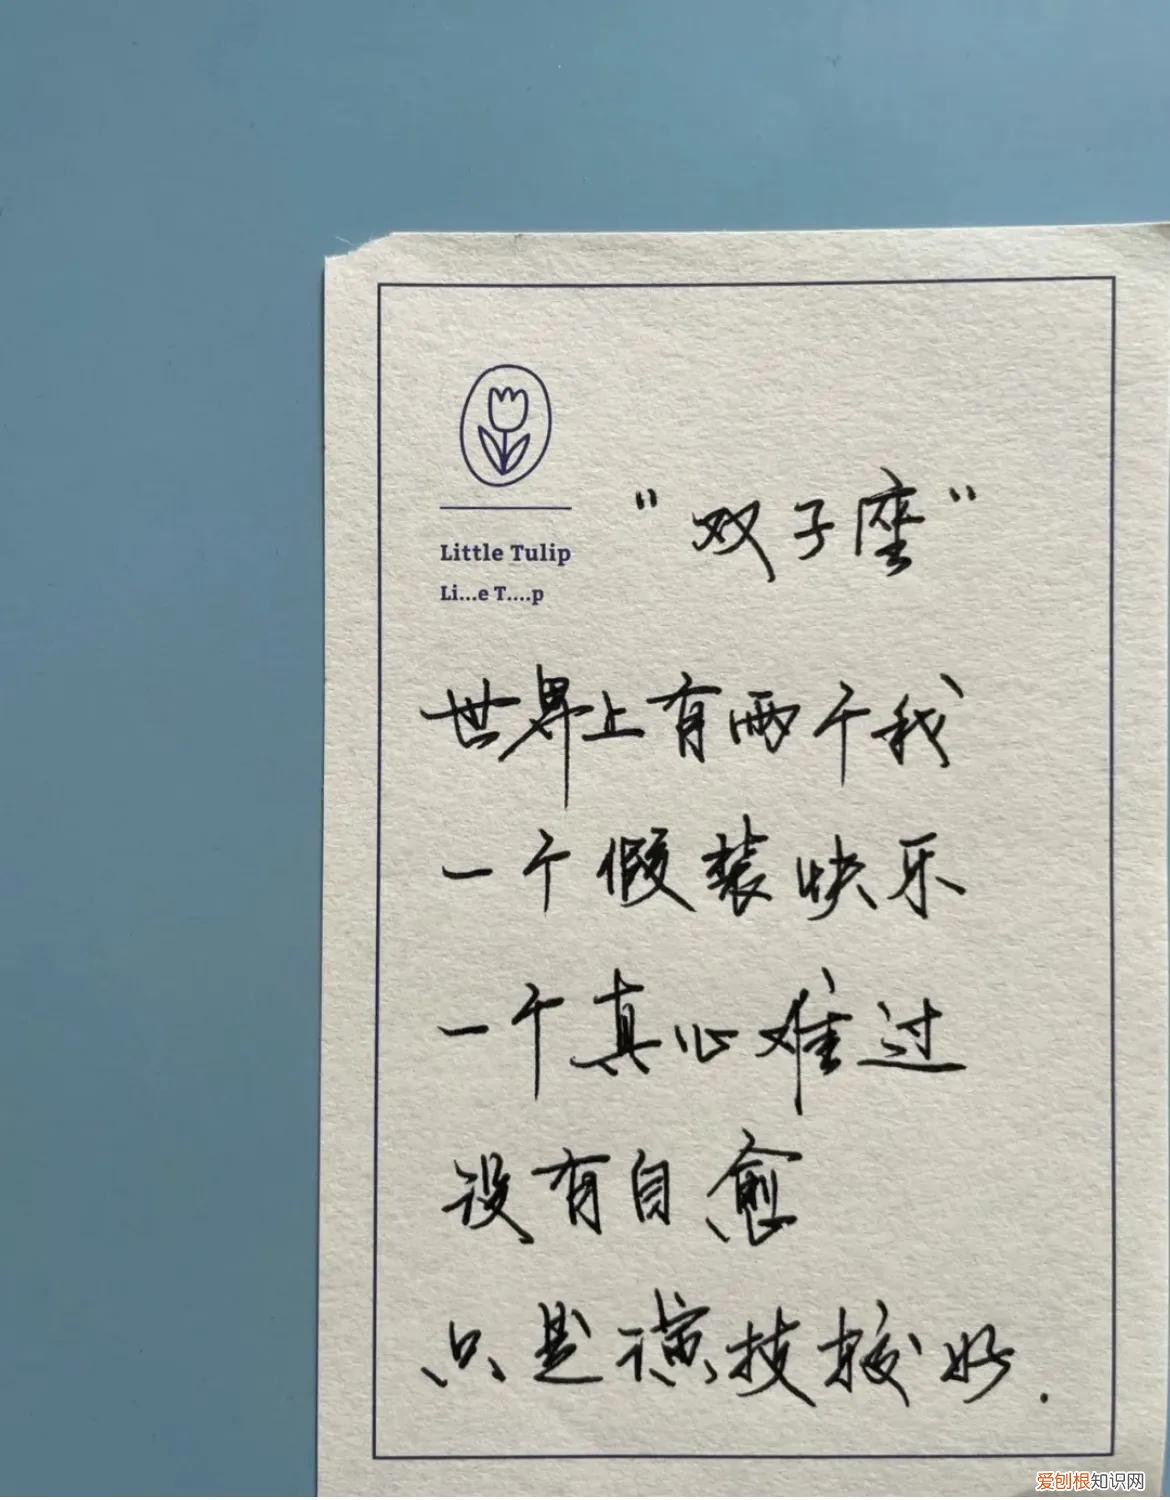 Little Tulip
Li...e T....p
"双子座"
世界上有两个我
一个假装快乐
一个真心难过
没有自愈
只是演技较好.
爱刨根知识网